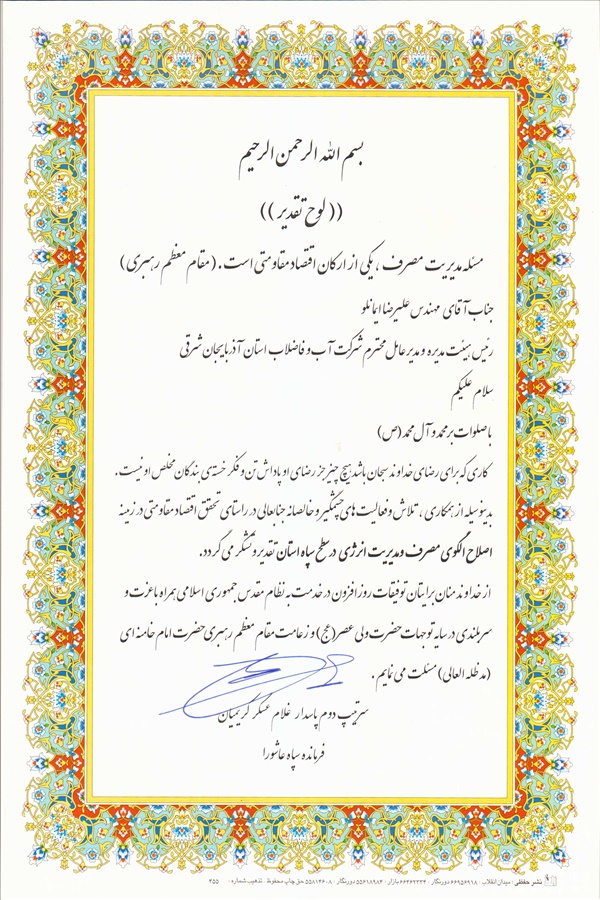 بسم الله الرحمن الرحیم
(( لوح تقدیر ))
مسئله مدیریت مصرف ، یکی از ارکان اقتصاد مقاومتی است . ( مقام معظم رهبری )
جناب آقای مهندس علیرضا ایمانلو
رئیس هیئت مدیره و مدیر عامل محترم شرکت آب و فاضلاب استان آذربایجان شرقی
سلام علیکم
با صلوات بر محمد و آل محمد (ص)
کاری که برای رضای خداوند سبحان باشد هیچ چیز جز رضای او پاداش تن و فکر خسته‌ی بندگان مخلص او نیست .
بدینوسیله از همکاری ، تلاش و فعالیت های چشمگیر و خالصانه جنابعالی در راستای تحقق اقتصاد مقاومتی در زمینه
اصلاح الگوی مصرف و مدیریت انرژی در سطح سپاه استان تقدیر و تشکر می گردد.
از خداوند منان برایتان توفیقات روزافزون در خدمت به نظام مقدس جمهوری اسلامی همراه با عزت و
سربلندی در سایه توجهات حضرت ولی عصر (عج) و زعامت مقام معظم رهبری حضرت امام خامنه ای
(مد ظله العالی) مسئلت می نمایم .
سرتیپ دوم پاسدار غلام عسکر کریمیان
فرمانده سپاه عاشورا
نشر حفظی : میدان انقلاب : ۶۶۹۵۶۹۱۸ دورنگار - ۶۶۴۶۲۳۳۳ بازار : ۵۵۶۱۸۹۸۳ دورنگار : ۵۵۸۱۳۶۰۸ حق چاپ محفوظ . تذهیب شماره : ۲۵۵